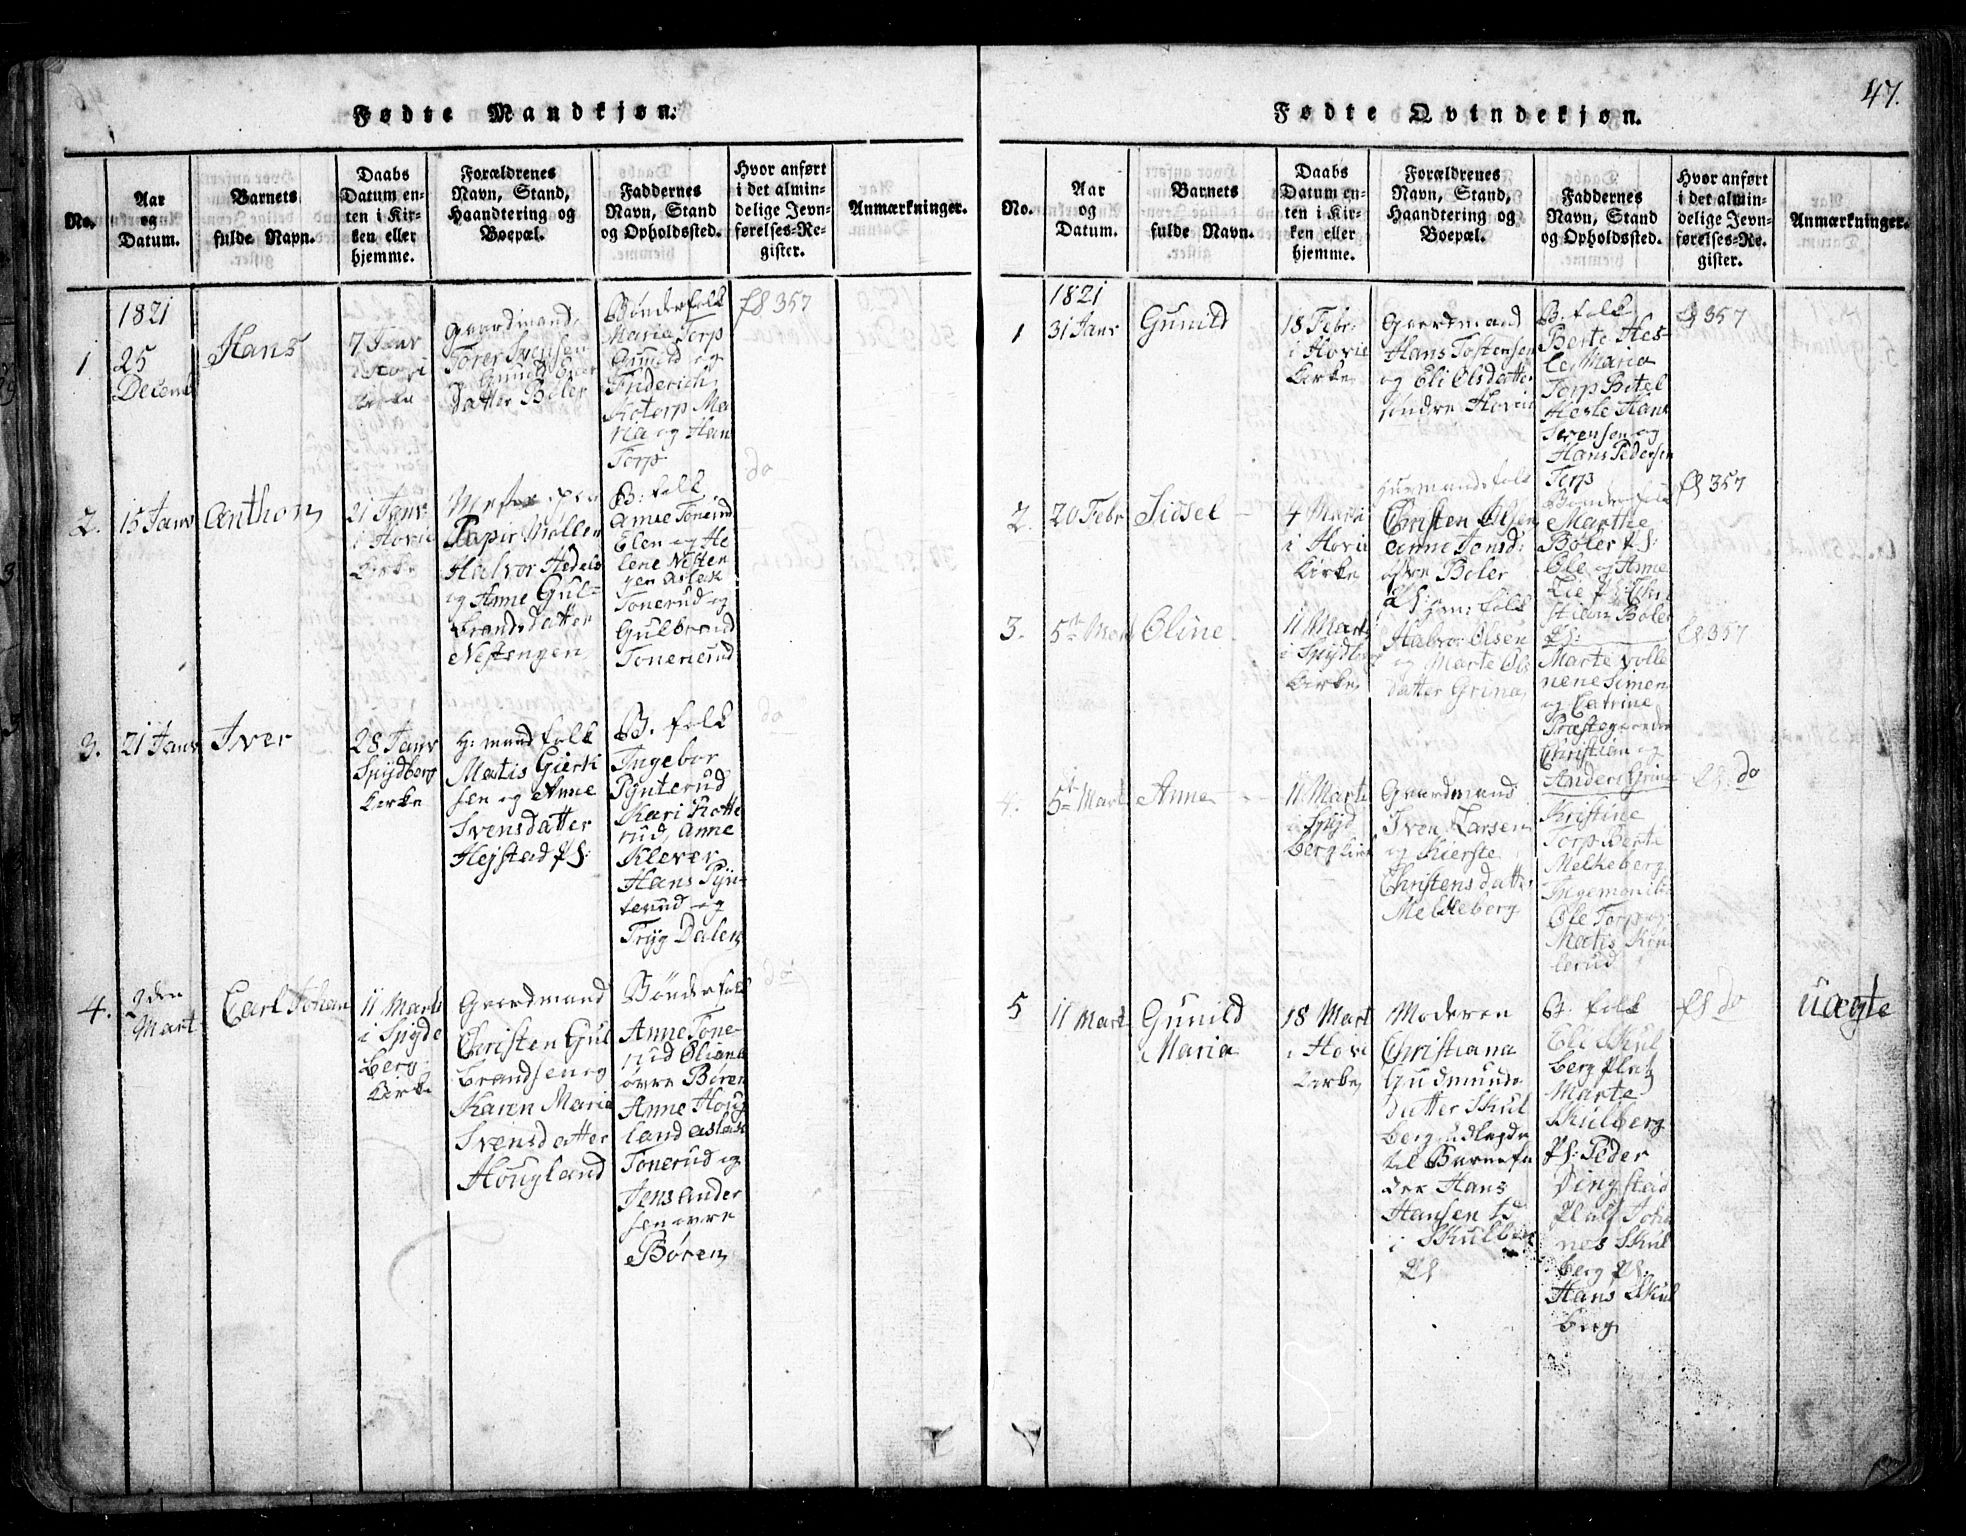 47.
Fødte Mandkjøn.
No.
Aar
og
Datum.
Barnets
fulde Navn.
Daabs
Datum en-
ten i Kir-
ken eller
hjemme.
Forældrenes
Navn, Stand,
Haandtering og
Boepæl.
Faddernes
Navn, Stand
og Opholdssted.
Hvor anført
i det almin-
delige Jevn-
førelses-Re-
gister.
Anmærkninger.
1821
1
25
Decemb
Hans
7 Janv
i Hovi
Kirke
Gaardmand
Torer Svensen
Gunild Iver
datter Boler
Bønderfolk
Maria Torp
Gunild og
Friderich
Haterp Ma
ria og Han
Torp
fS 357
2.
15 Janv
Anthon
21 Janv
i Hovie
Kirke
Mester i pen
Papir Møllen
Halvor Hedels
og Anne Gul-
brandsdatter
Nestengen
B: folk
Anne Tonerud
Elen og He
lene Nesten
gen Aslak
Tonerud og
Gulbrand
Tonerud
do
3.
21 Janv
Iver
28 Janv
Spydberg
Kirke
H: mand folk
Matis Gierk
sen og Anne
Svensdatter
Hejstad PS:
B. folk
Ingebor
Pynterud
Kari Hotte
rud, Anne
Klever
Hans Pyn-
terud og
Tryg Dalen
do
4.
2den
Mart
Carl Johan
11 Marti
i Spyde
berg
Kirke
Gaardmand
Christen Gul
brandsen og
Karen Maria
Svensdatter
Hougland
Bønderfolk
Anne Tone-
rud Oliana
øvre Børen
Anne Houg
land Aslak
Tonerud og
Jens Ander
sen øvre
Børen
do
Fødte Qvindekjøn.
No.
Aar
og
Datum.
Barnets
fulde Navn.
Daabs
Datum en-
ten i Kir-
ken eller
hjemme.
Forældrenes
Navn, Stand,
Haandtering og
Boepæl.
Faddernes
Navn, Stand
og Opholdssted.
Hvor anført
i det almin-
delige Jevn-
førelses-Re-
gister.
Anmærkninger.
1821
1
31 Janv
Gunild
18 Febr:
i Hovie
Kirke
Gaardmand
Hans Tostensen
og Eli Olsdatter
søndre Hovie
B: folk
Berte Hes-
le, Maria
Torp Botel
Hesle Hans
Sørensen og
Hans Pedersen
Torp
fS 357
2.
20 Febr
Sidsel
4 Marti
i Hovie
Kirke
Husmandsfolk
Christen Olsen
Anne Jensd:
øvre Boler
PS:
Bønderfolk
Marthe
Boler PS:
Ole og Anne
Lie PS:
Boler
PS:
fS 357
3.
5te Mart
Oline
11 Marti
i Spydberg
Kirke
Hm: folk
Halvor Olsen
og Marte Ols
datter Grina
Marte Volle
nene Simen
og Catrine
Præstegaarden
Christian og
Anders Grina
fS 357
4.
5te Mart
Anne
11 Marti
i Spyd
berg Kirk
Gaardmand
Sven Larsen
og Kierste
Christensdatter
Melleberg
Kristine
Torp Berte
Melkeberg
Ole Torp og
Matis Røn
terud
fS. do
5
11 Mart
Gunild
Maria
18 Mart
i Hovi
Kirke
Moderen
Christiana
Gudmunds
datter Skul
berg udlagde
til Barnefa
der Hans
Hansen
i Skulberg
PS
B: folk
Eli Skul
berg Plat
Marte
Skulberg
PS: Peder
Dingstad
Plats Joha
nes Skul
berg PS.
Hans Skul
berg
fS do
uægte